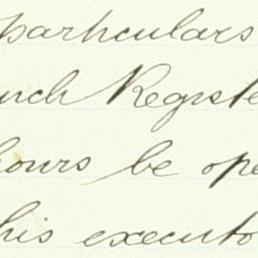 particulars
such Registe
hours be ope
his executo